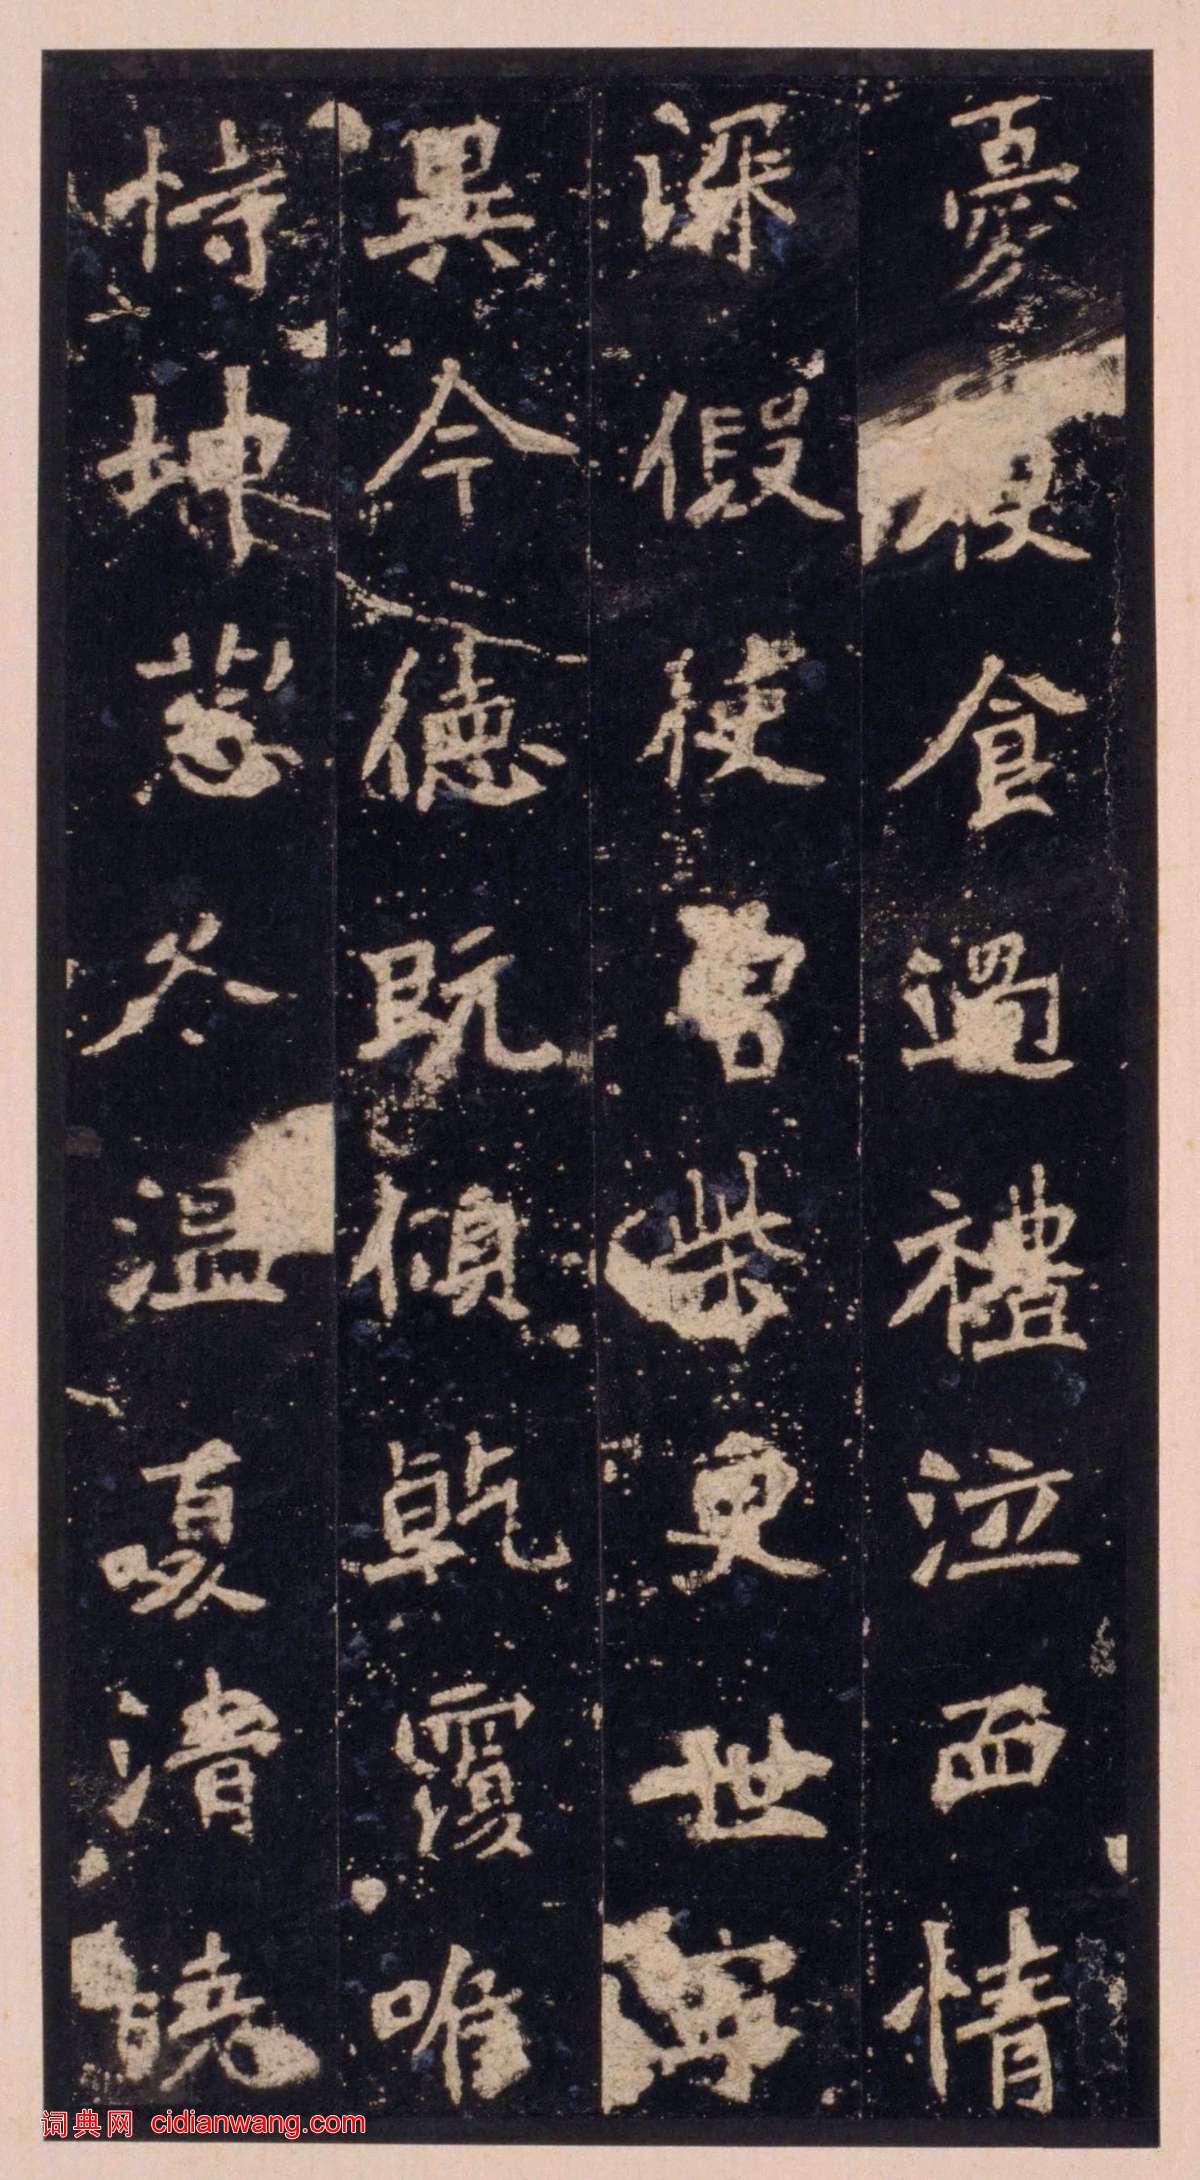 憂寢食過禮泣面情
深假使曾柴更世寧
異今德既傾乾覆唯
恃坤慈冬温夏清曉
词典网 cidianwang.com